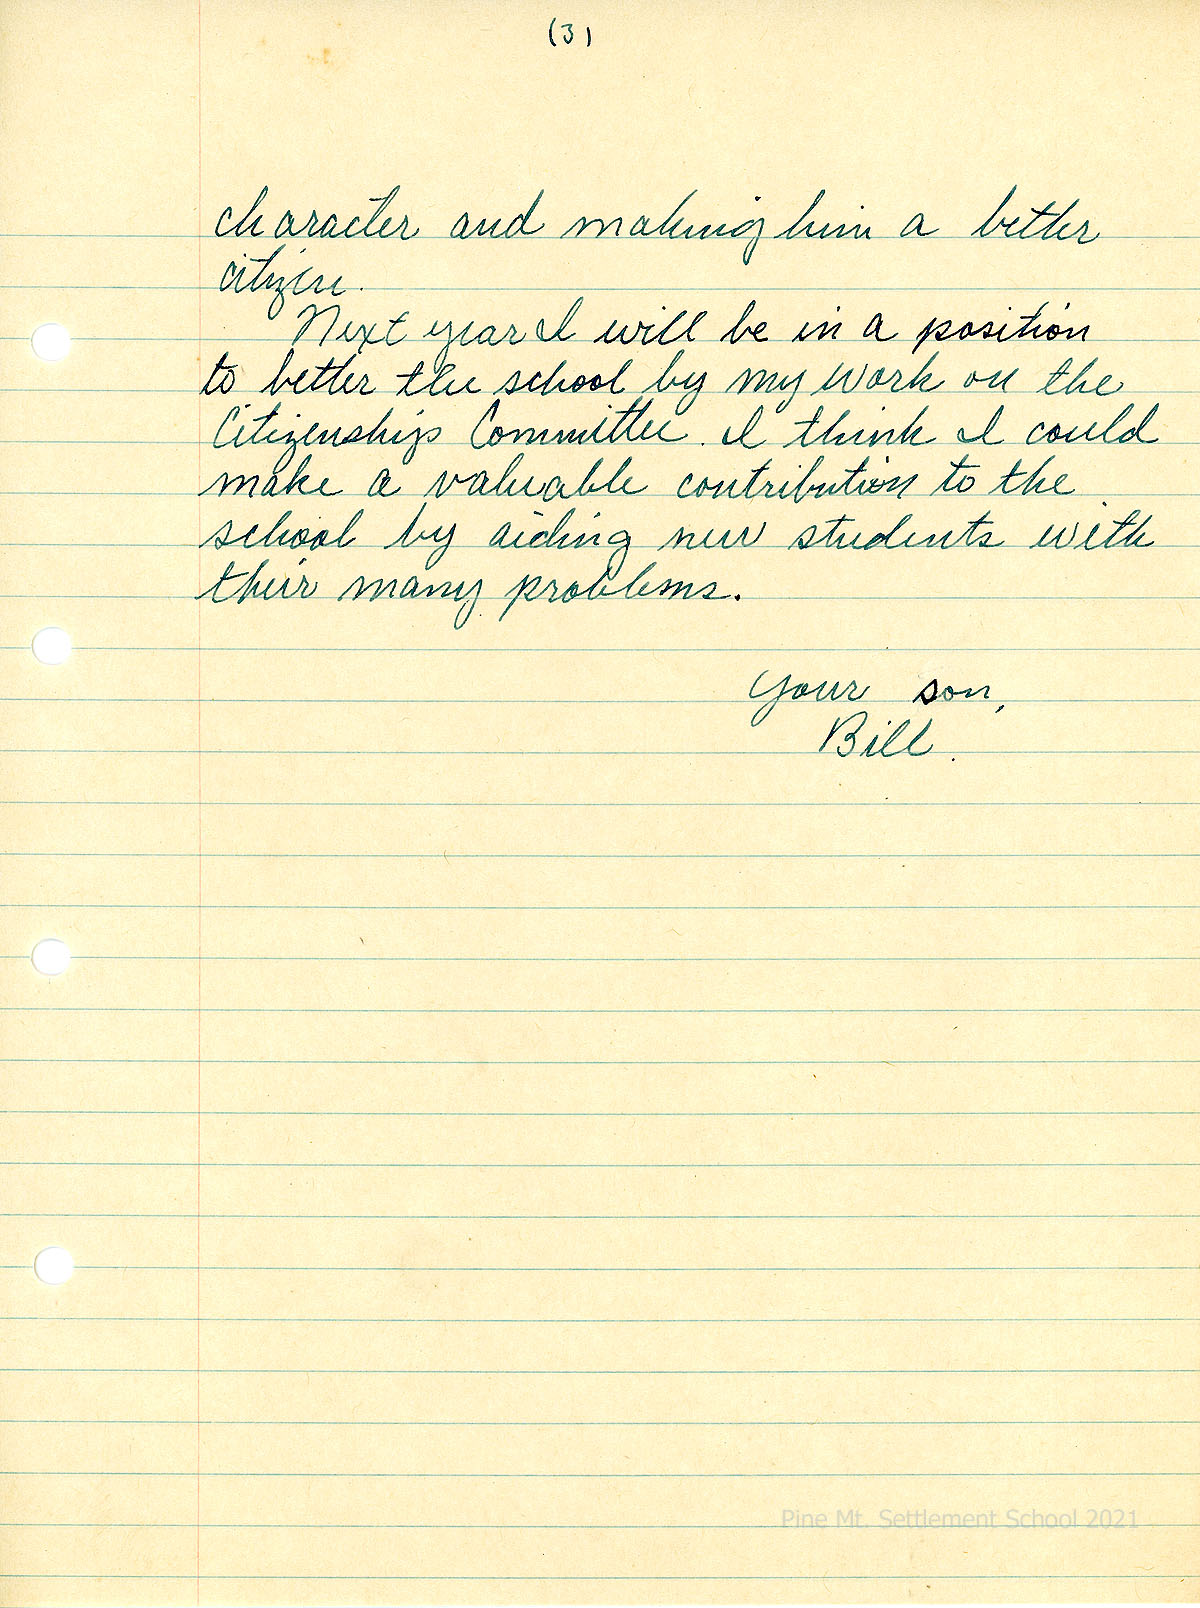 (3)
character and making him a better
citizen.
Next year I will be in a position
to better the school by my work on the
Citizenship Committee. I think I could
make a valuable contribution to the
school by aiding new students with
their many problems.
Your son,
Bill.
Pine Mt. Settlement School 2021